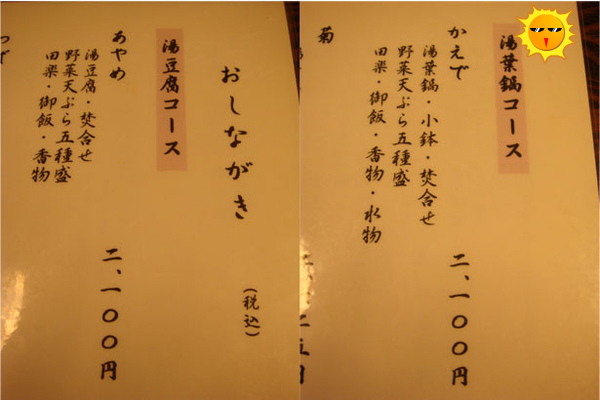 おしながき
(税込)
湯豆腐コース
あやめ
二、一〇〇円
湯豆腐・焚合せ
野菜天ぷら五種盛
田楽・御飯・香物
湯葉鍋コース
かえで
二、一〇〇円
湯葉鍋・小鉢・焚合せ
野菜天ぷら五種盛
田楽・御飯・香物・水物
菊